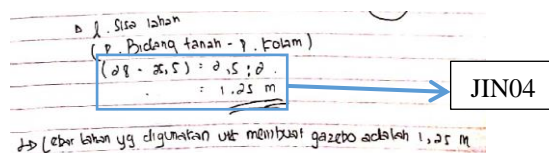 l. Sisa lahan
(P. Bidang tanah - P. Kolam)
(28 - 25,5) = 2,5 : 2
= 1,25 m
JIN04
Lebar lahan yg digunakan utk membuat gazebo adalah 1,25 m